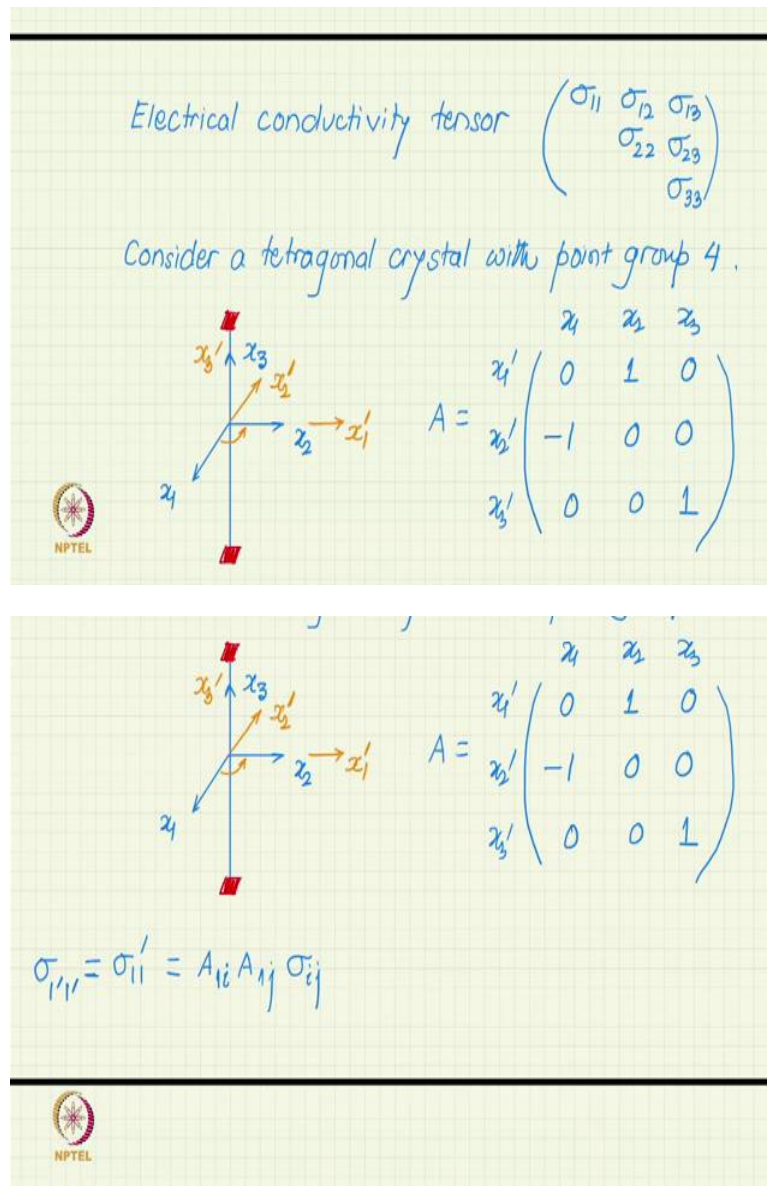 Electrical conductivity tensor
σ11 σ12 σ13
σ22 σ23
σ33
Consider a tetragonal crystal with point group 4.
x3' x3
x2'
x2 x1'
x1
x1 x2 x3
A =
x1' 0 1 0
x2' -1 0 0
x3' 0 0 1
NPTEL
x3' x3
x2'
x2 x1'
x1
x1 x2 x3
A =
x1' 0 1 0
x2' -1 0 0
x3' 0 0 1
σ1'1' = σ11' = A1i A1j σij
NPTEL